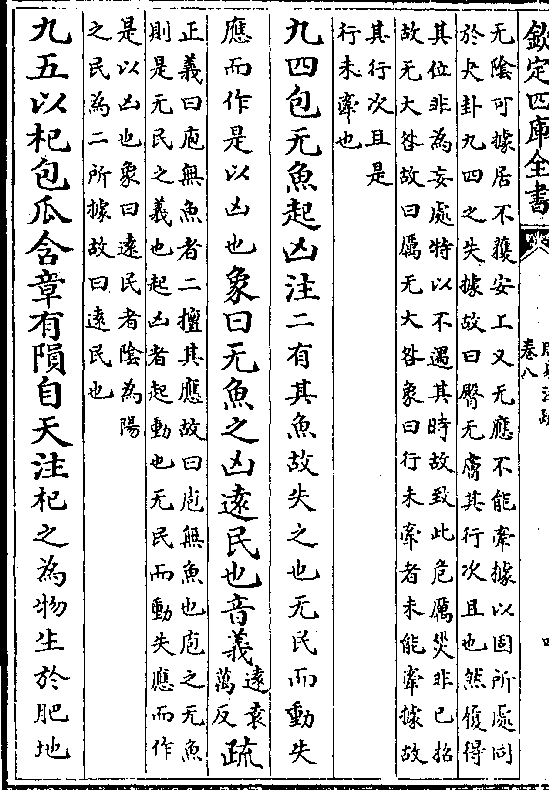 欽定四庫全書
卷八
无陰可據居不獲安上又无應不能牽據以固所處同
於夬卦九四之失據故曰臀无膚其行次且也然復得
其位非為妄處特以不遇其時故致此危厲災非已招
故无大咎故曰厲无大咎象曰行未牽者未能牽據故
其行次且是
行未牽也
九四包无魚起凶注二有其魚故失之也无民而動失
應而作是以凶也象曰无魚之凶遠民也音義遠袁萬反疏
正義曰庖無魚者二擅其應故曰庖無魚也庖之无魚
則是无民之義也起凶者起動也无民而動失應而作
是以凶也象曰遠民者陰為陽
之民為二所據故曰遠民也
九五以杞包瓜含章有隕自天注杞之為物生於肥地